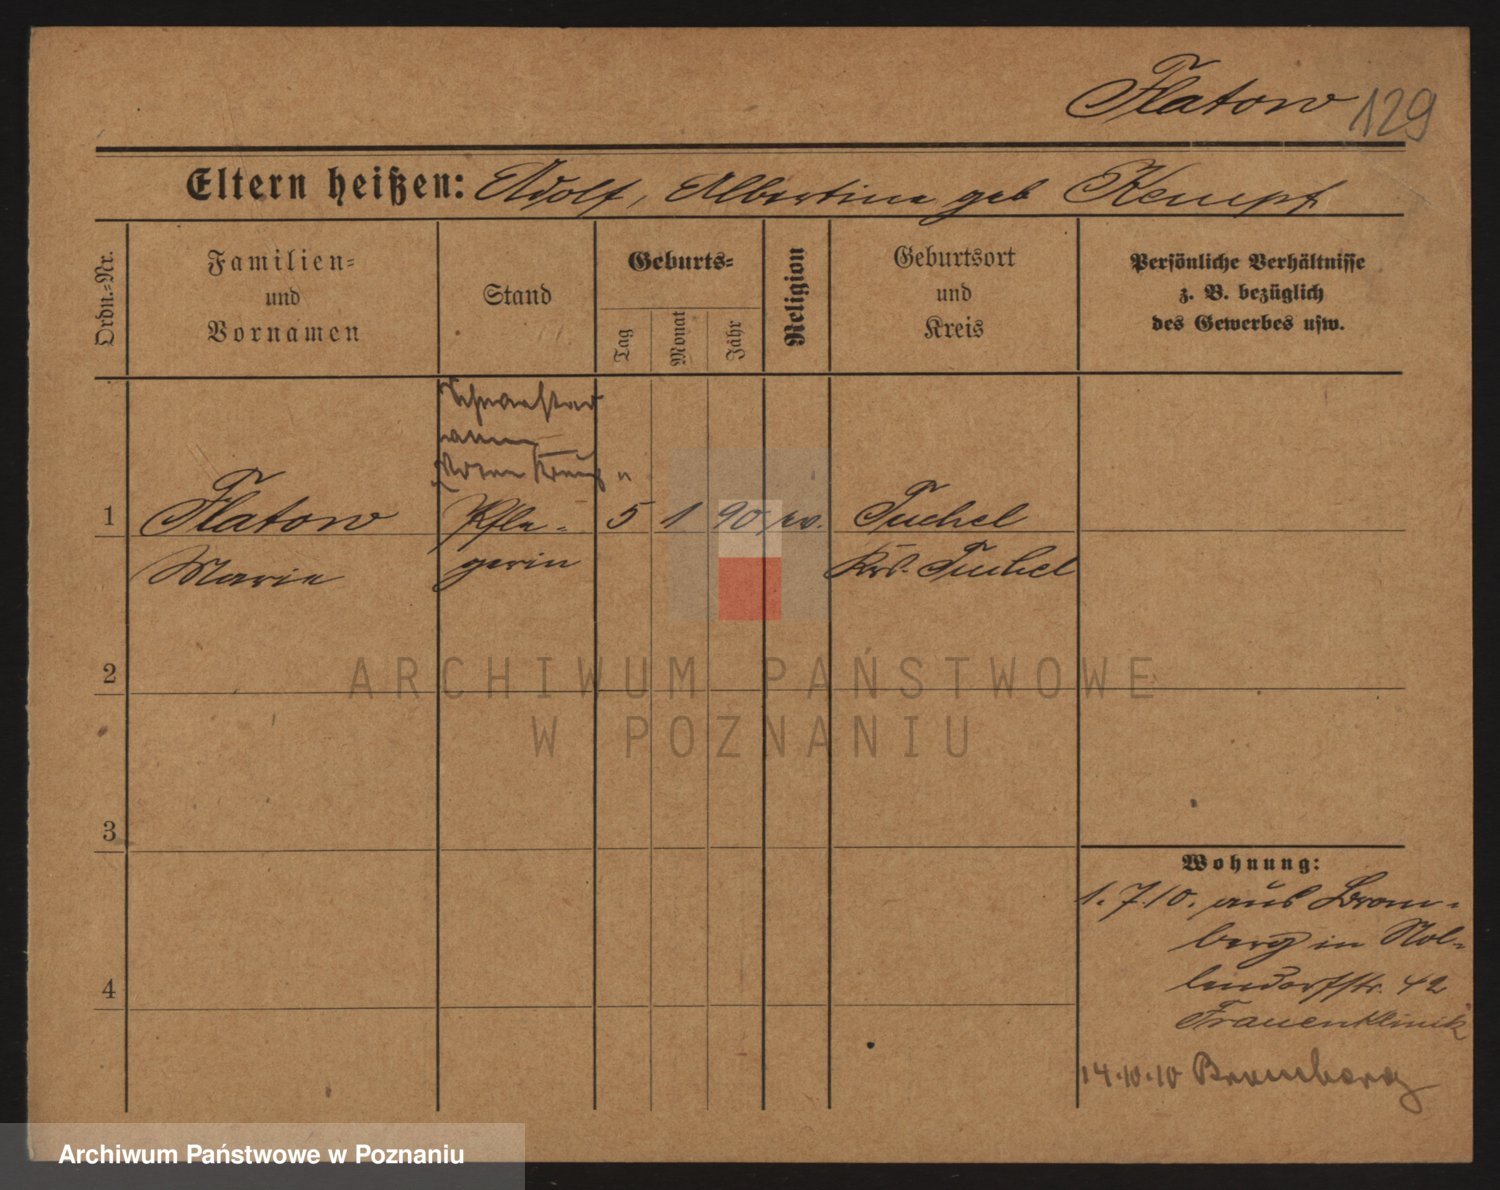 Flatow 129
Eltern heißen: Adolf, Albertine geb Kempf
Ordn.-Nr.
Familien-
und
Vornamen
Stand
Geburts-
Tag
Monat
Jahr
Religion
Geburtsort
und
Kreis
Persönliche Verhältnisse
z. B. bezüglich
des Gewerbes usw.
1 Flatow Pfle- 5 1 90 ev. Tuchel
Marie gerin Krs. Tuchel
2
3
4
Wohnung:
1.7.10. aus Brom-
berg in Nol-
lendorfstr. 42
Frauenklinik
14.10.10 Bromberg
ARCHIWUM PAŃSTWOWE
W POZNANIU
Archiwum Państwowe w Poznaniu